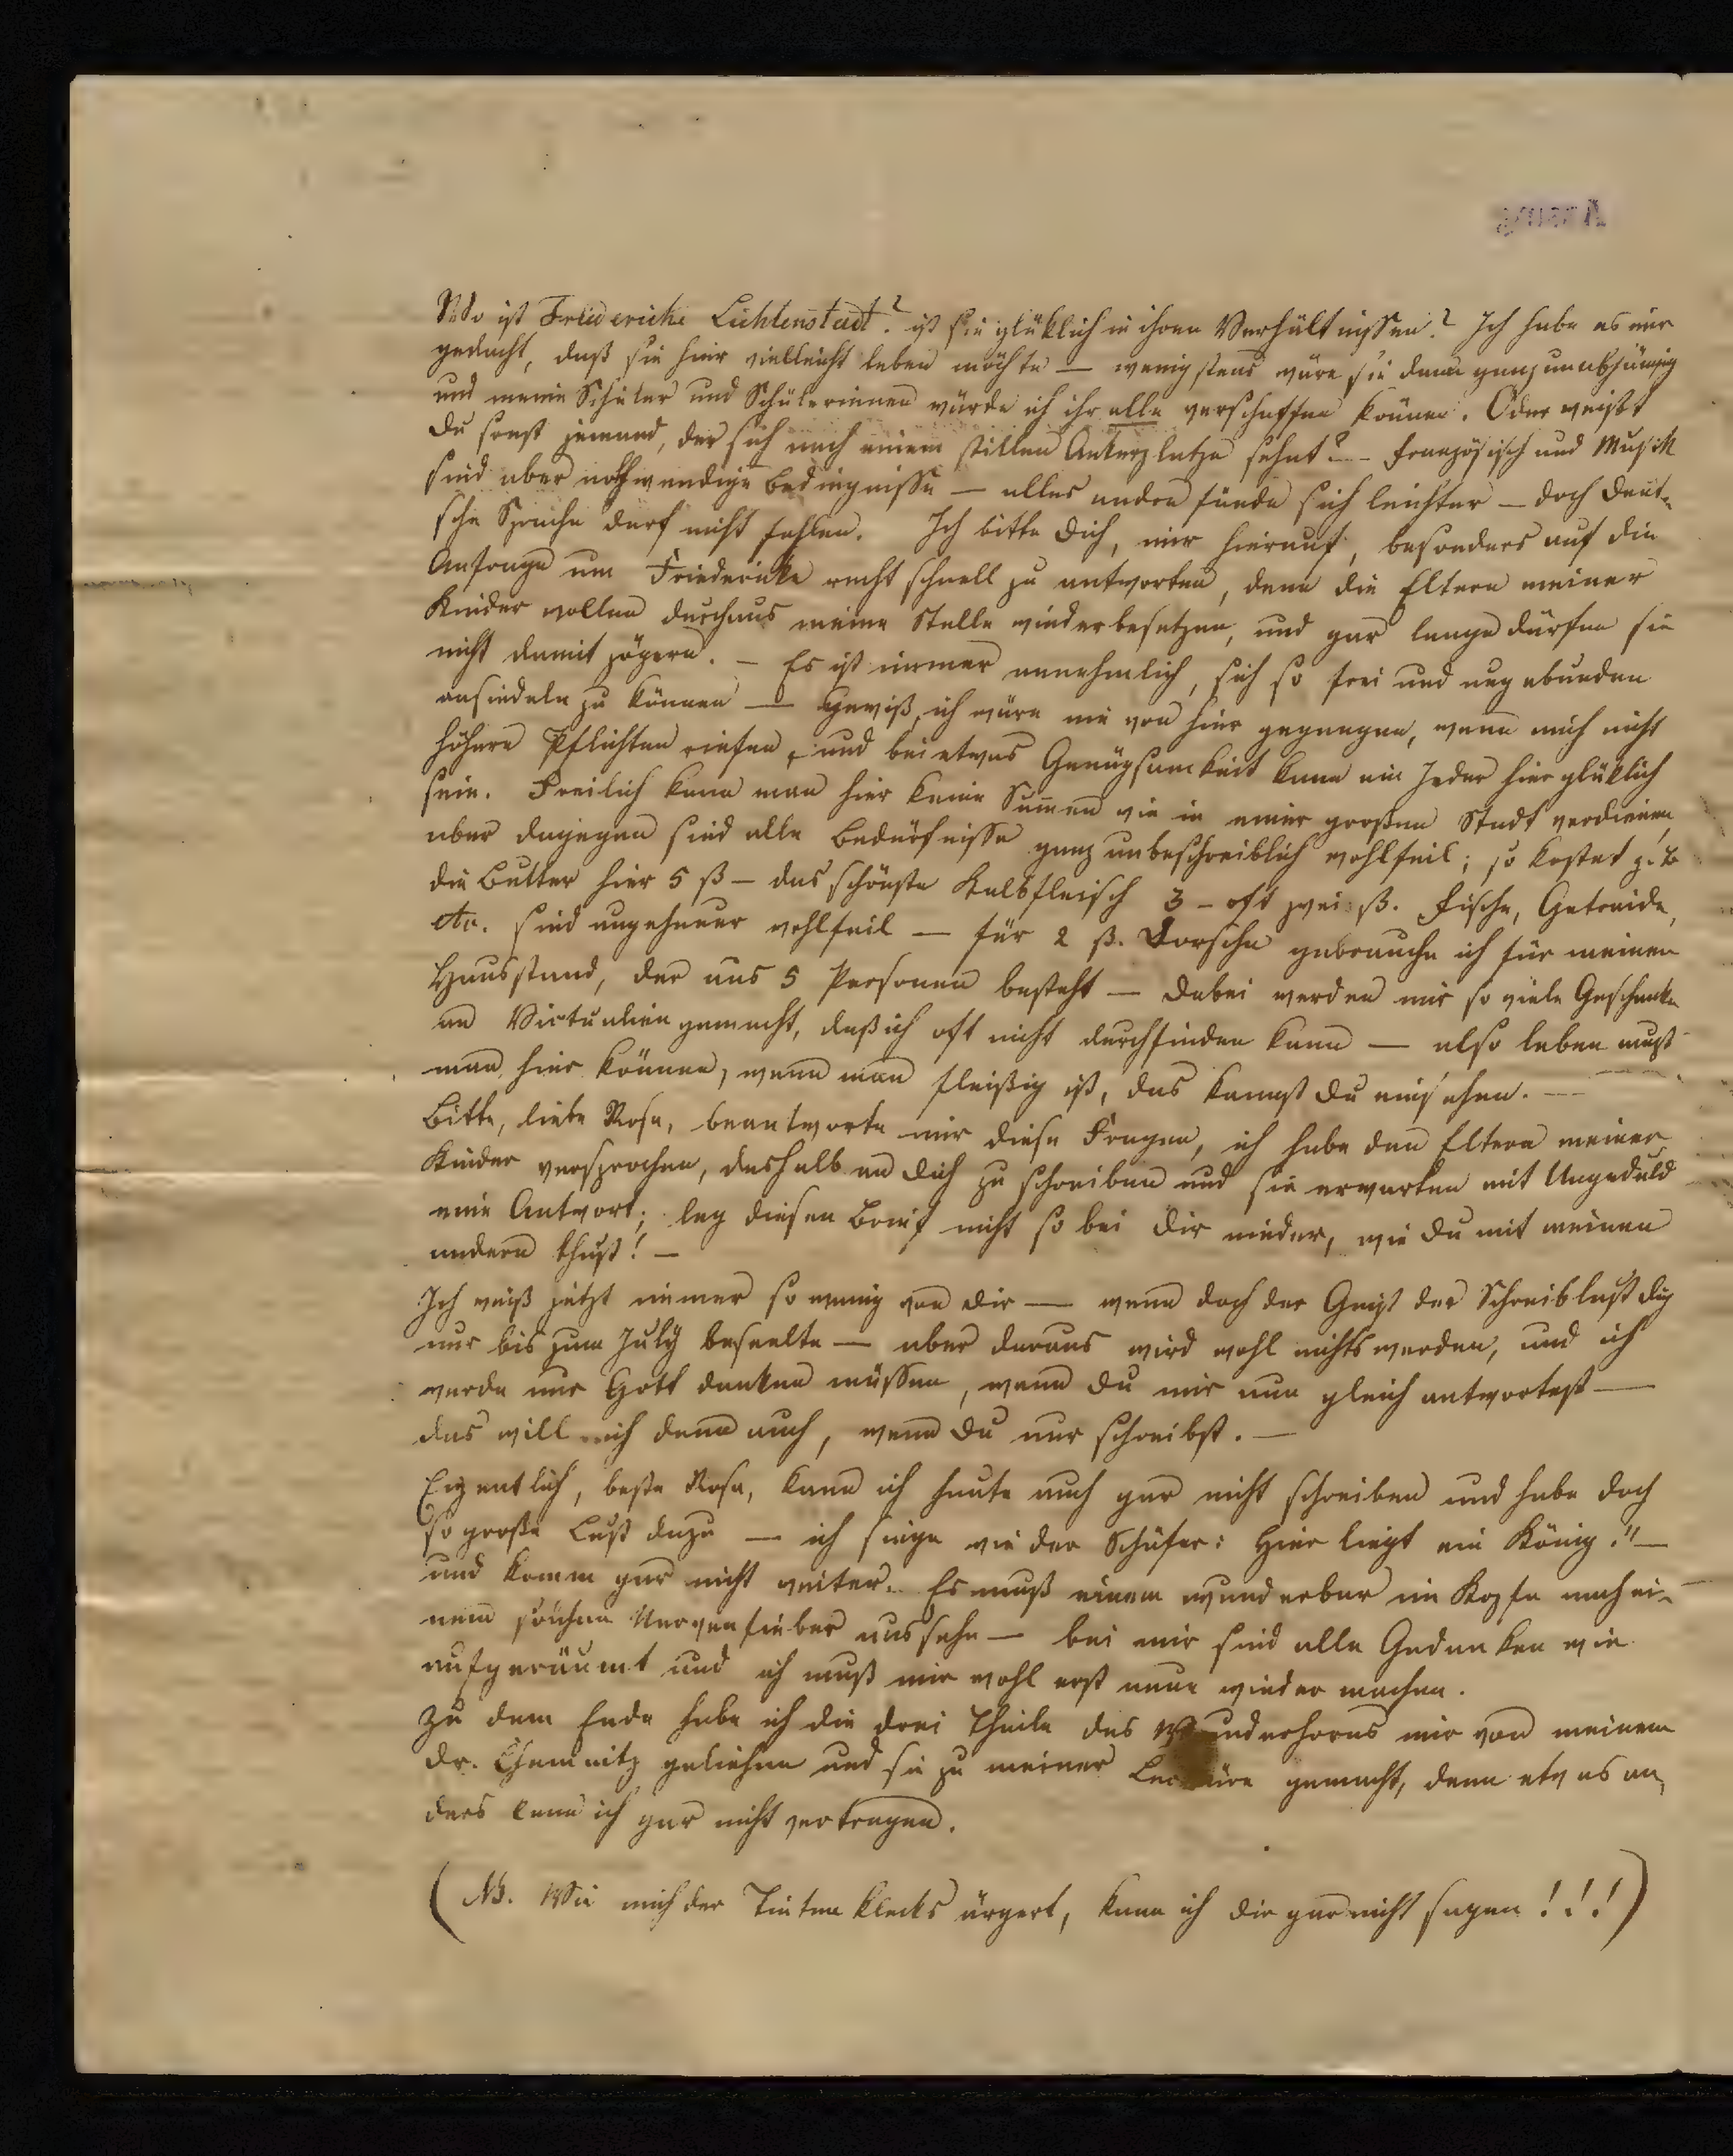 Wo ist Friederike Lichtenstadt? ist sie glüklich in ihren Verhältnissen? Ich habe es mir
gedacht, daß sie hier vielleicht leben möchte — wenigstens wäre sie dann ganz unabhängig
und meine Schüler und Schülerinnen würde ich ihr alle verschaffen können. Oder weißt
Du sonst jemand, der sich nach einem stillen Ankerplatze sehnt? — französisch und Musik
sind aber nothwendige Bedingnisse — alles andre fände sich leichter — doch deut-
sche Sprache darf nicht fehlen. Ich bitte Dich, mir hierauf, besonders auf die
Anfrage um Friederike recht schnell zu antworten, denn die Eltern meiner
Kinder wollen durchaus meine Stelle wiederbesetzen, und gar lange dürfen sie
nicht damit zögern. — Es ist immer annehmlich, sich so frei und ungebunden
ansiedeln zu können — gewiß, ich wäre nie von hier gegangen, wenn mich nicht
höhere Pflichten riefen, und bei etwas Genügsamkeit kann ein Jeder hier glüklich
sein. Freilich kann man hier keine Summen wie in einer großen Stadt verdienen,
aber dagegen sind alle Bedürfnisse ganz unbeschreiblich wohlfeil; so kostet z. B
die Butter hier 5 ß — das schönste Kalbfleisch 3 — oft zwei ß. Fische, Getreide,
etc. sind ungeheuer wohlfeil — für 2 ß. Dorsche gebrauche ich für meinen
Hausstand, der aus 5 Personen besteht — dabei werden mir so viele Geschenke
an Victualien gemacht, daß ich oft nicht durchfinden kann — also leben muß
man hier können, wenn man fleißig ist, das kannst Du einsehen. —
Bitte, liebe Rosa, beantworte mir diese Fragen, ich habe den Eltern meiner
Kinder versprochen, deshalb an Dich zu schreiben und sie erwarten mit Ungeduld
eine Antwort; leg diesen Brief nicht so bei Dir nieder, wie Du mit meinen
andern thust! —
Ich weiß jetzt immer so wenig von Dir — wenn doch der Geist der Schreiblust Dich
nur bis zum July beseelte — aber daraus wird wohl nichts werden, und ich
werde nur Gott danken müssen, wenn Du mir nun gleich antwortest —
das will ich denn auch, wenn Du nur schreibst. —
Eigentlich, beste Rosa, kann ich heute auch gar nicht schreiben und habe doch
so große Lust dazu — ich singe wie der Schäfer: Hier liegt ein König!" —
und komm gar nicht weiter. Es muß einem wunderbar im Kopfe nach ei-
nem solchen Nervenfieber aussehn — bei mir sind alle Gedanken wie
aufgeräumt und ich muß mir wohl erst neue wieder machen.
Zu dem Ende habe ich die drei Theile des Wunderhorns mir von meinem
Dr. Chemnitz geliehen und sie zu meiner Lectüre gemacht, denn etwas an-
ders kann ich gar nicht vertragen.
(NB. Wie mich der Tintenklecks ärgert, kann ich dir gar nicht sagen!!!)